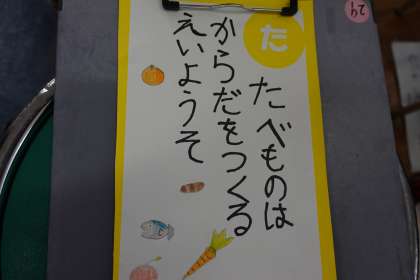 た
たべものは
からだをつくる
えいようそ
24